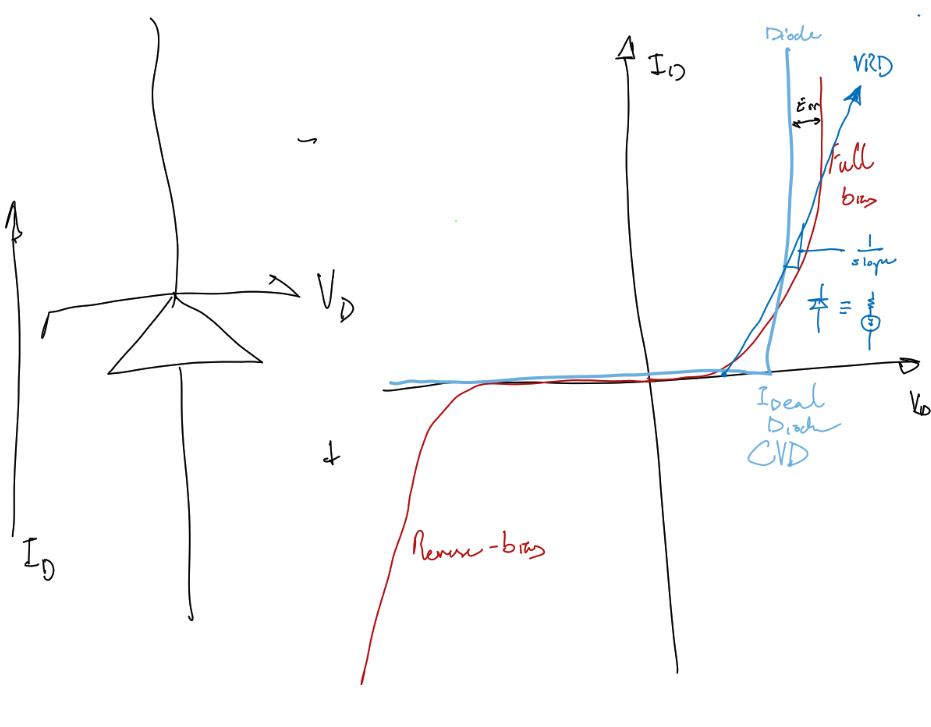 Diode
I_D
VRD
Err
Full
bias
1
slope
V_D
≡
V_D
Ideal
Diode
CVD
+
-
I_D
Reverse-bias